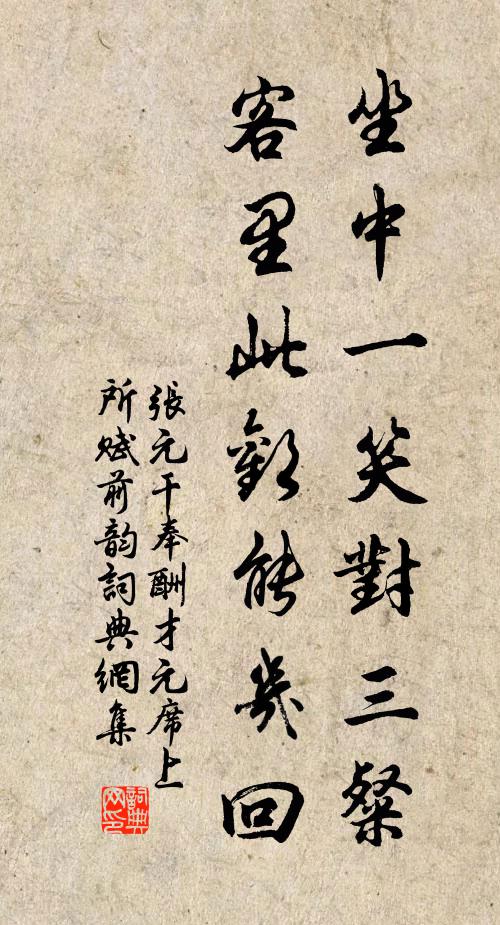 坐中一笑對三粲
客里此歡能幾回
張元干奉酬才元席上
所賦前韵詞典網集
詞典網印